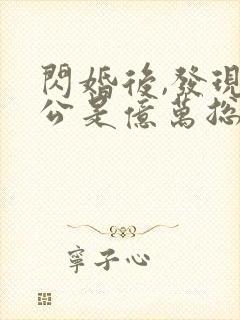 閃婚後,發現
公是億萬總
寧子心